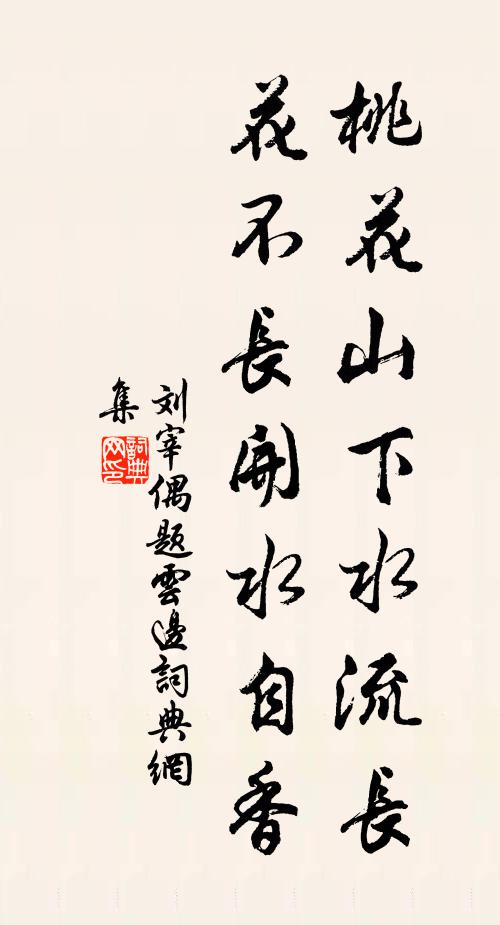 桃花山下水流長
花不長開水自香
刘宰偶题雲邊詞典網
集
詞典网印